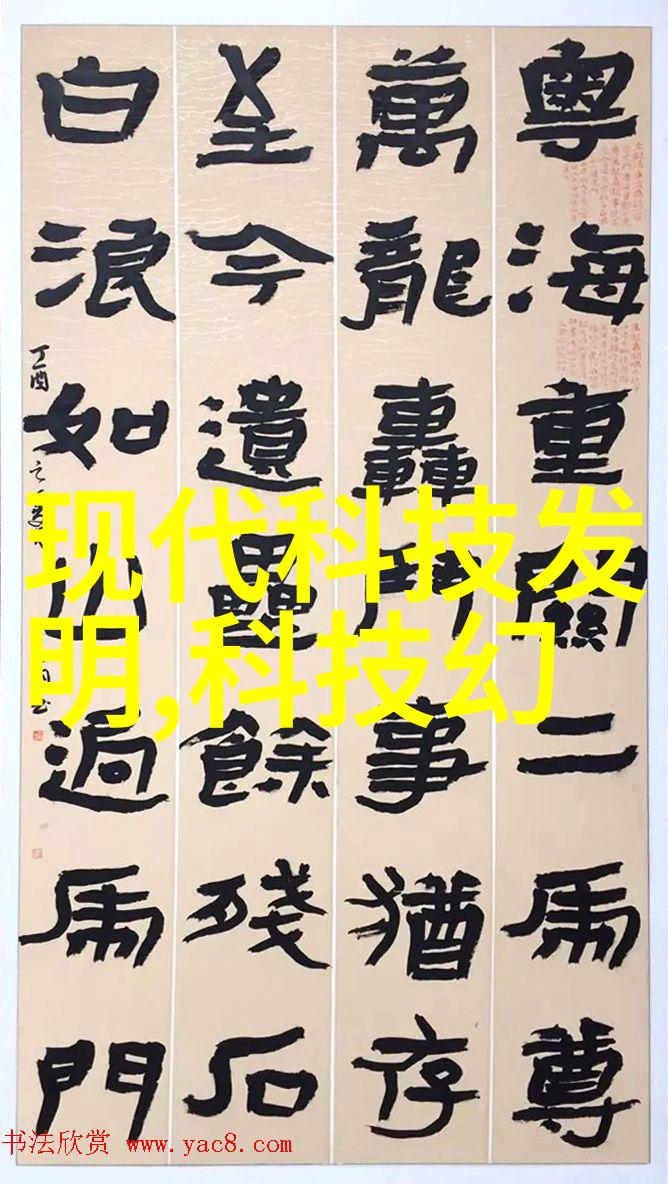 粤海重關二虎尊
萬龍轟鬥事猶存
至今遺壘餘殘石
白浪如山過虎門
丁酉
现代科技发
明,科技幻
书法欣赏 www.yac8.com